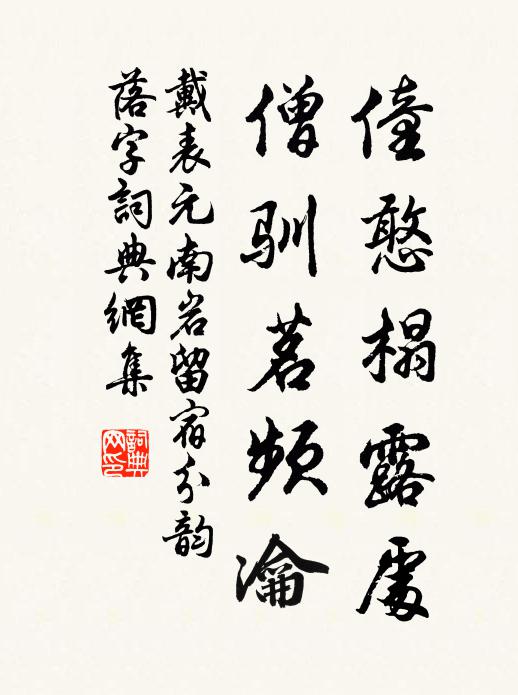 僮憨榻露處
僧馴茗頻瀹
戴表元南岩留宿分韵
落字詞典網集
詞典网印